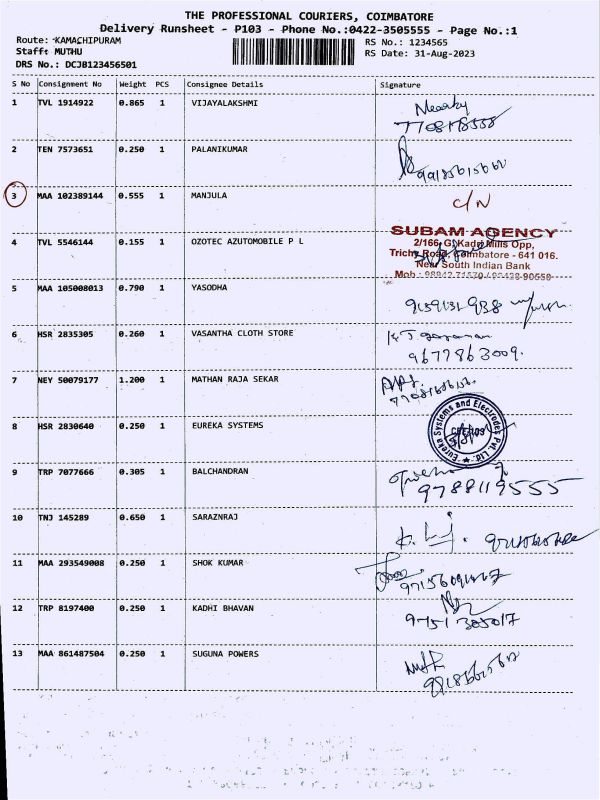 THE PROFESSIONAL COURIERS, COIMBATORE
Delivery Runsheet - P103 - Phone No.:0422-3505555 - Page No.:1
Route: KAMACHIPURAM
Staff: MUTHU
DRS No.: DCJB123456501
RS No.: 1234565
RS Date: 31-Aug-2023
S No Consignment No Weight PCS Consignee Details Signature
1 TVL 1914922 0.865 1 VIJAYALAKSHMI Nearby
2 TEN 7573651 0.250 1 PALANIKUMAR
3 MAA 102389144 0.555 1 MANJULA C/N
SUBAM AGENCY
2/166, G, Kadri Mills Opp,
Trichy Road, Coimbatore - 641 016.
Near South Indian Bank
4 TVL 5546144 0.155 1 OZOTEC AZUTOMOBILE P L
5 MAA 105008013 0.790 1 YASODHA
6 HSR 2835305 0.260 1 VASANTHA CLOTH STORE
9677863009.
7 NEY 50079177 1.200 1 MATHAN RAJA SEKAR
8 HSR 2830640 0.250 1 EUREKA SYSTEMS
Eureka Systems and Electrodes Pvt. Ltd.
9 TRP 7077666 0.305 1 BALCHANDRAN
9788119555
10 TNJ 145289 0.650 1 SARAZNRAJ
11 MAA 293549008 0.250 1 SHOK KUMAR
12 TRP 8197400 0.250 1 KADHI BHAVAN
9751385017
13 MAA 861487504 0.250 1 SUGUNA POWERS